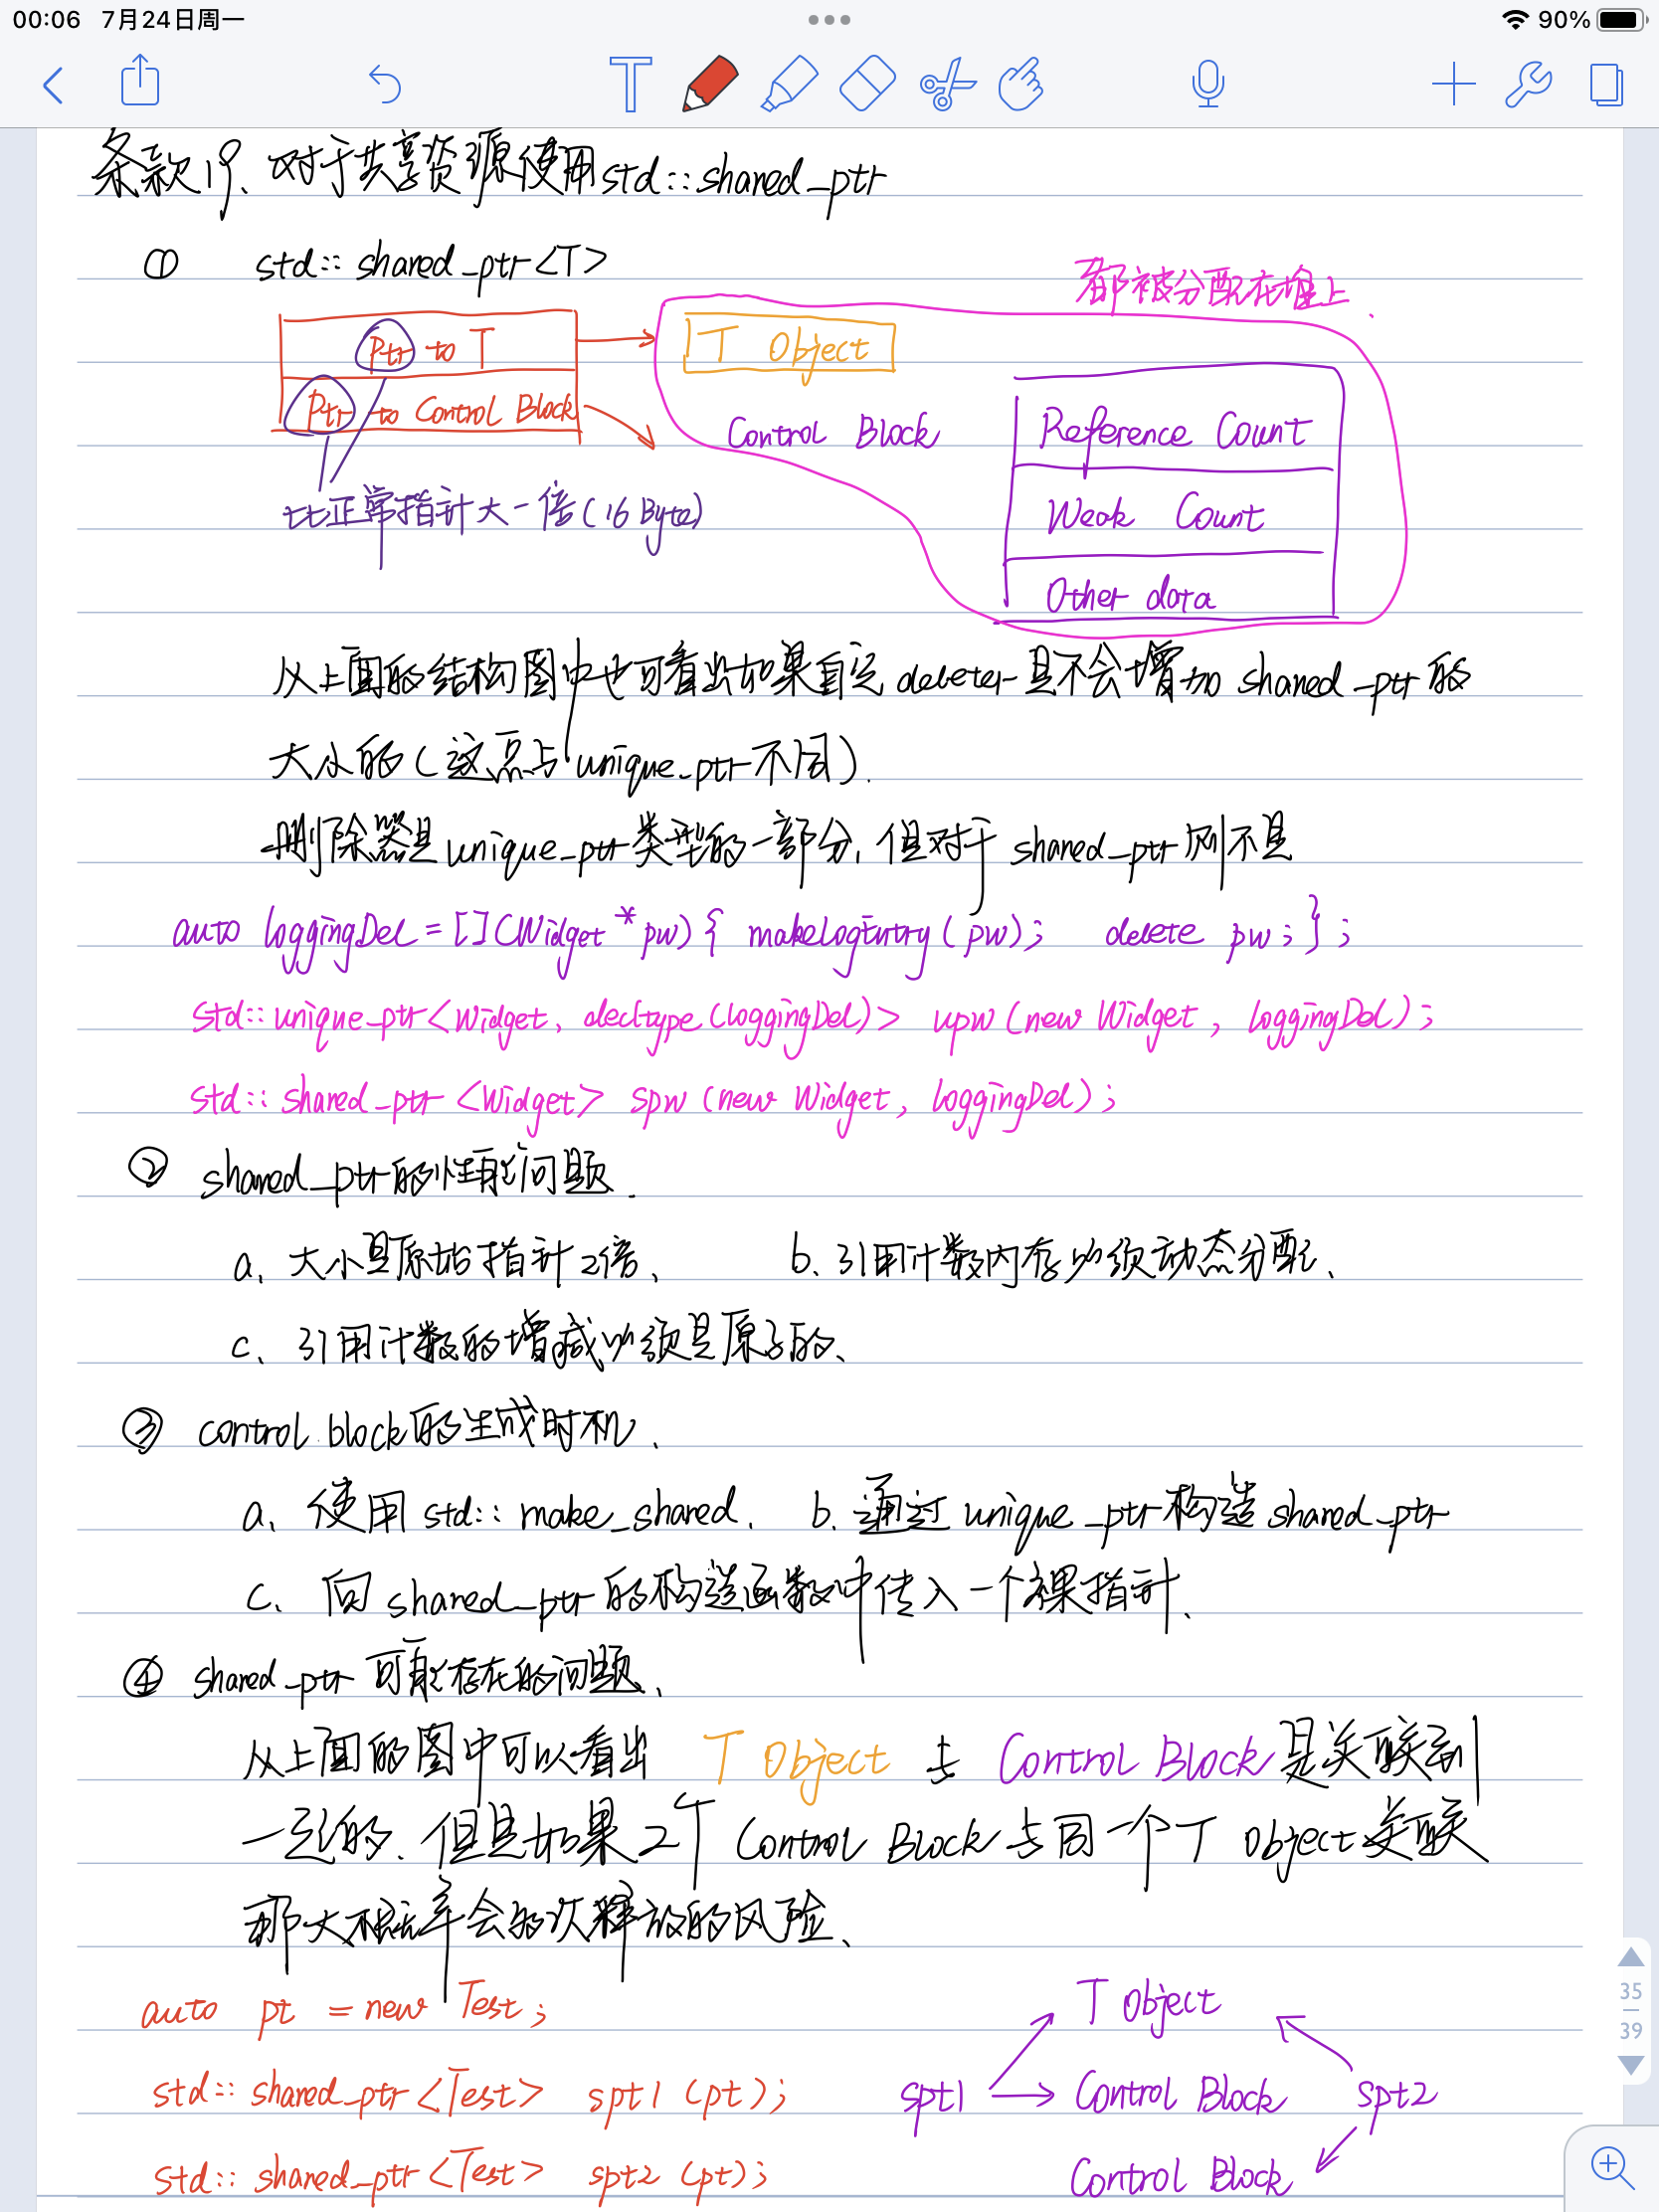 00:06 7月24日周一
90%
条款19、对于共享资源使用std::shared_ptr
① std::shared_ptr<T>
都被分配在堆上.
Ptr to T
T Object
Ptr to Control Block
Control Block
Reference Count
比正常指针大一倍(16 Byte)
Weak Count
Other data
从上面的结构图中也可看出如果自定deleter是不会增加shared_ptr的
大小的(这点与unique_ptr不同).
删除器是unique_ptr类型的一部分,但对于shared_ptr则不是
auto loggingDel = [](Widget *pw){ makeLogEntry(pw); delete pw;};
std::unique_ptr<Widget, decltype(loggingDel)> upw(new Widget, loggingDel);
std::shared_ptr<Widget> spw(new Widget, loggingDel);
② shared_ptr的性能问题.
a、大小是原始指针2倍、 b、引用计数内存必须动态分配、
c、引用计数的增减必须是原子的、
③ control block的生成时机、
a、使用std::make_shared. b.通过unique_ptr构造shared_ptr
c、向shared_ptr的构造函数中传入一个裸指针、
④ shared_ptr可能存在的问题、
从上面的图中可以看出 T Object 与 Control Block是关联到
一起的.但是如果2个Control Block与同一个T object关联
那大概率会多次释放的风险、
auto pt = new Test;
T Object
std::shared_ptr<Test> spt1 (pt);
spt1 Control Block spt2
std::shared_ptr<Test> spt2 (pt);
Control Block
35
39